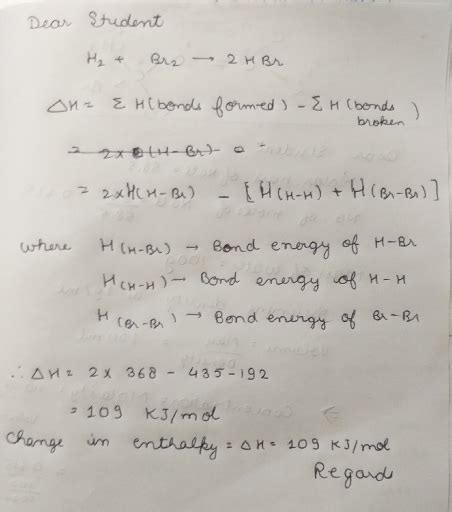 Dear Student
H₂ + Br₂ → 2 HBr
ΔH = Σ H (bonds formed) - Σ H (bonds broken)
= 2 x H(H-Br) - [H(H-H) + H(Br-Br)]
where H(H-Br) → Bond energy of H-Br
H(H-H) → Bond energy of H-H
H(Br-Br) → Bond energy of Br-Br
∴ ΔH = 2 x 368 - 435 - 192
= 109 KJ/mol
Change in enthalpy = ΔH = 109 KJ/mol
Regard